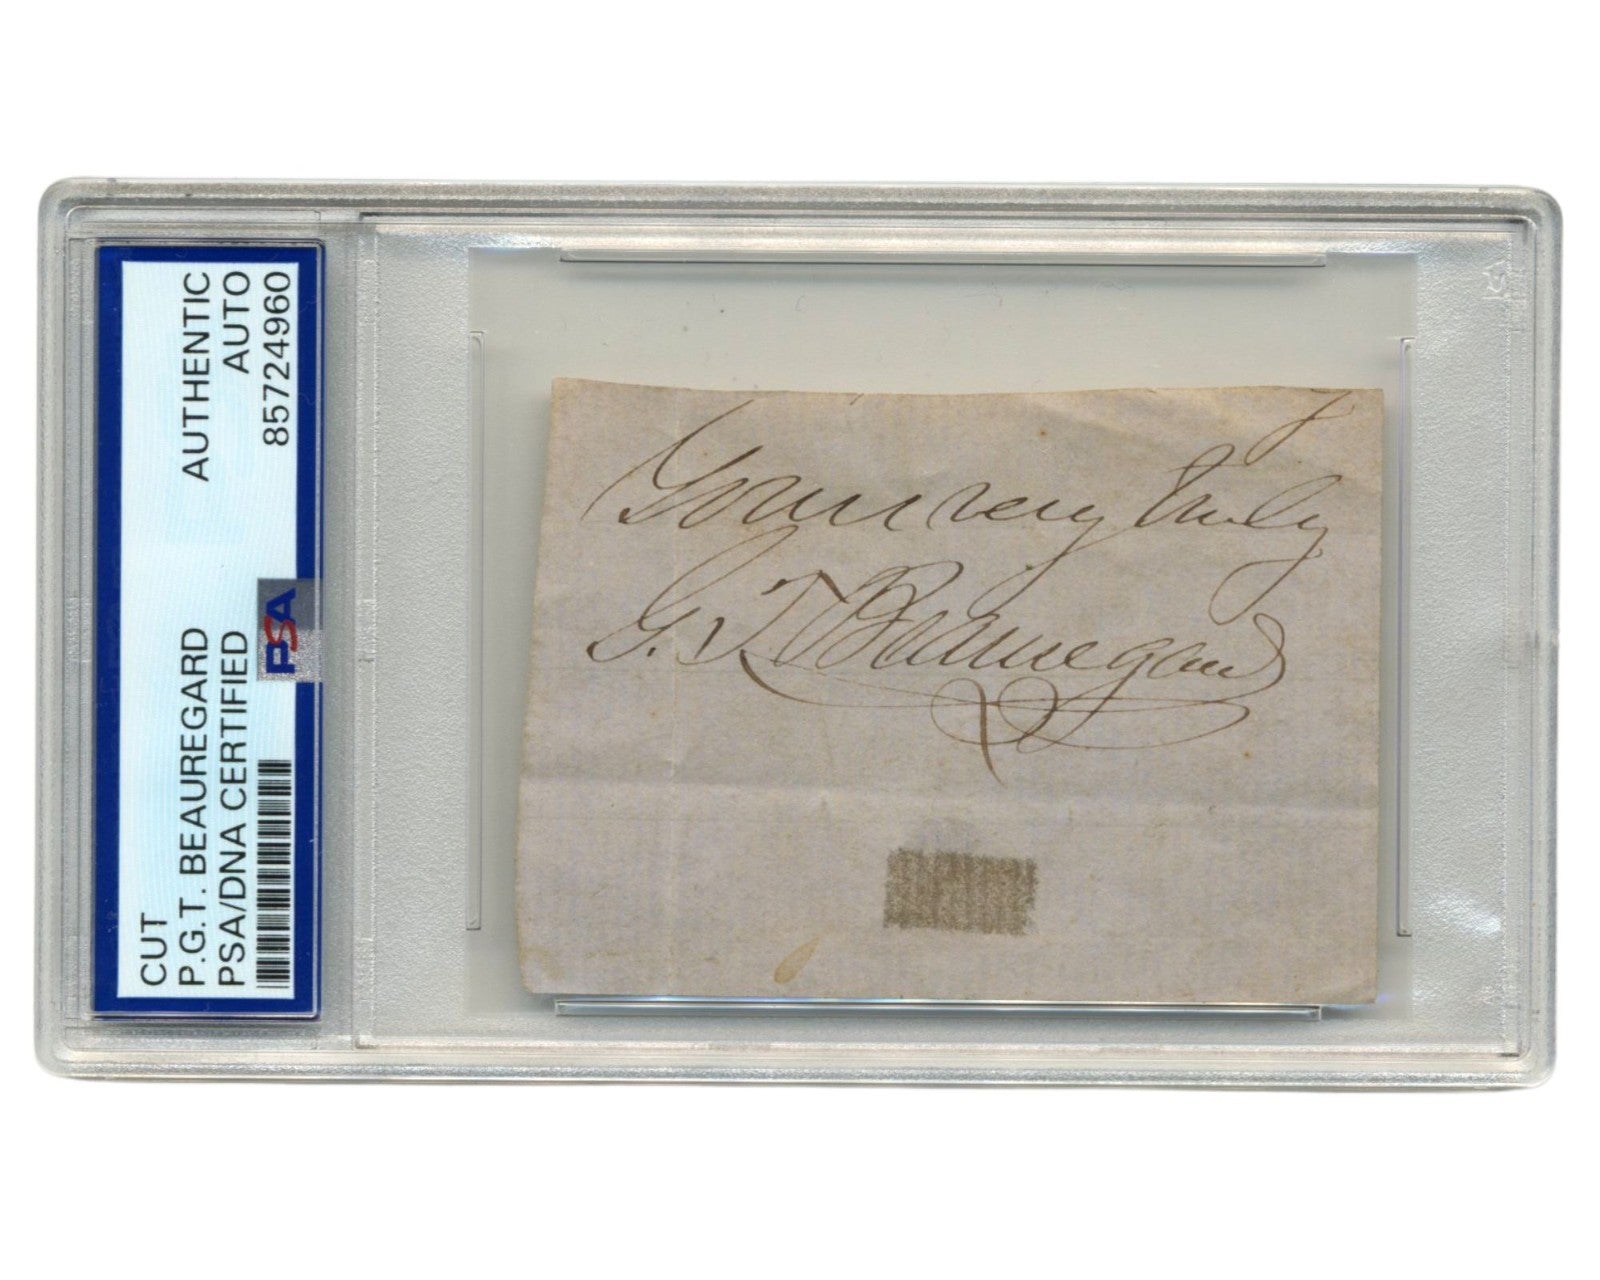 CUT
P.G.T. BEAUREGARD
PSA/DNA CERTIFIED
AUTHENTIC
AUTO
85724960
PSA
Yours very truly
G. T. Beauregard